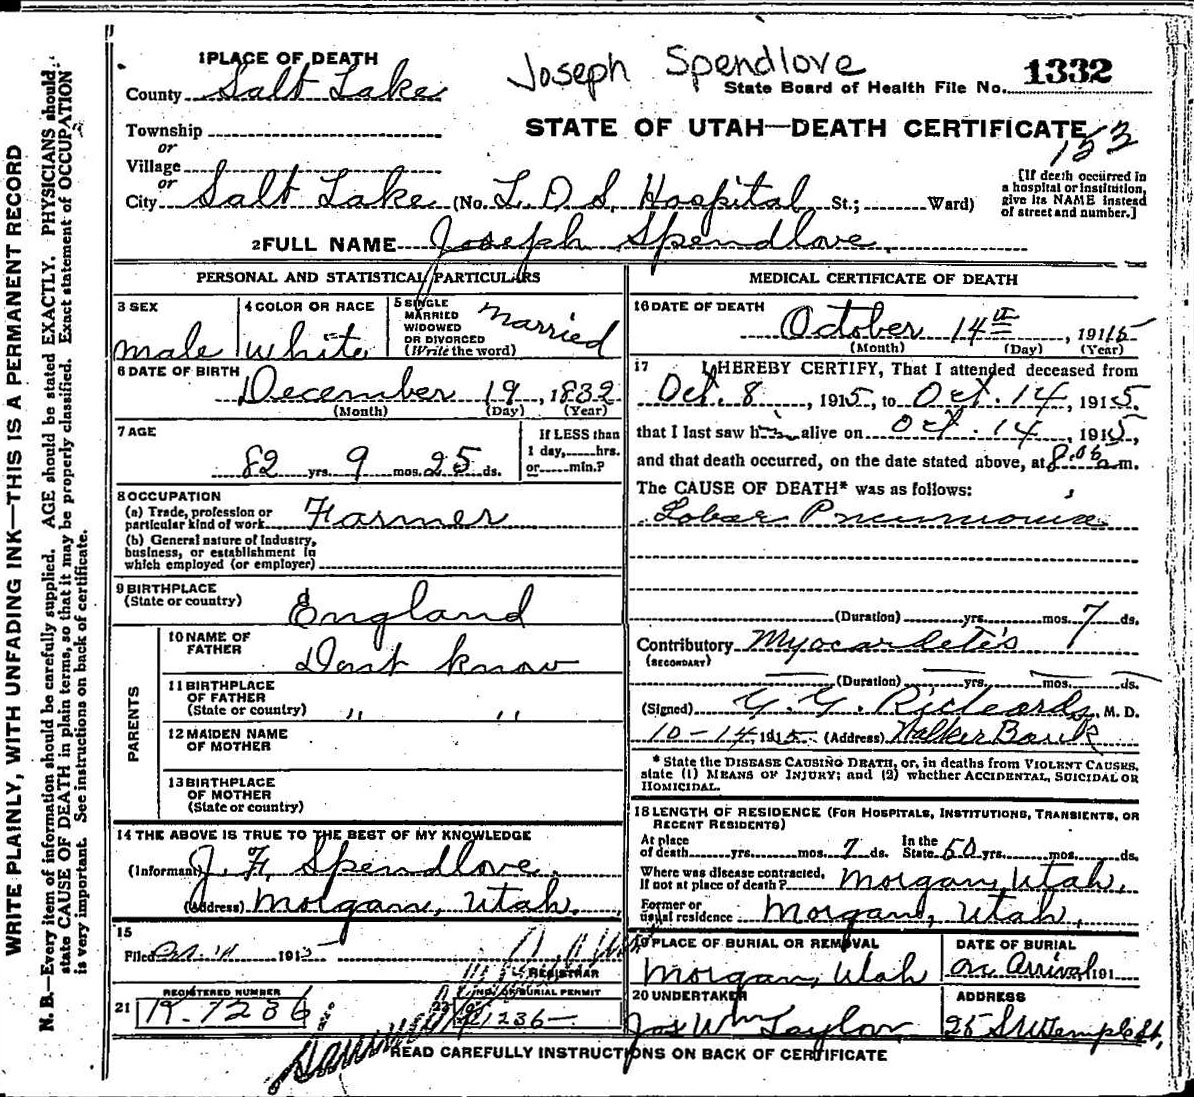 1 PLACE OF DEATH
Joseph Spendlove
County Salt Lake
State Board of Health File No. 1332
Township
STATE OF UTAH—DEATH CERTIFICATE
or
Village
or
City Salt Lake (No. L. D. S. Hospital St.; Ward)
[If death occurred in
a hospital or institution,
give its NAME instead
of street and number.]
2 FULL NAME Joseph Spendlove
PERSONAL AND STATISTICAL PARTICULARS
3 SEX
male
4 COLOR OR RACE
white
5 SINGLE
MARRIED
WIDOWED
OR DIVORCED
(Write the word)
married
6 DATE OF BIRTH
December 19, 1832
(Month) (Day) (Year)
7 AGE
82 yrs. 9 mos. 25 ds.
If LESS than
1 day, hrs.
or min.?
8 OCCUPATION
(a) Trade, profession or
particular kind of work Farmer
(b) General nature of Industry,
business, or establishment in
which employed (or employer)
9 BIRTHPLACE
(State or country)
England
PARENTS
10 NAME OF
FATHER
Dont know
11 BIRTHPLACE
OF FATHER
(State or country) " "
12 MAIDEN NAME
OF MOTHER
13 BIRTHPLACE
OF MOTHER
(State or country)
14 THE ABOVE IS TRUE TO THE BEST OF MY KNOWLEDGE
(Informant) J. F. Spendlove.
(Address) Morgan, Utah.
15
Filed 1915
REGISTRAR
REGISTERED NUMBER
21
22 NO. OF BURIAL PERMIT
MEDICAL CERTIFICATE OF DEATH
16 DATE OF DEATH
October 14th, 1915
(Month) (Day) (Year)
17 I HEREBY CERTIFY, That I attended deceased from
Oct. 8, 1915, to Oct. 14, 1915.
that I last saw him alive on Oct. 14, 1915,
and that death occurred, on the date stated above, at 8.05 a m.
The CAUSE OF DEATH* was as follows:
Lobar Pneumonia
(Duration) yrs. mos. 7 ds.
Contributory Myocarditis
(SECONDARY)
(Duration) yrs. mos. ds.
(Signed) G. G. Richards, M. D.
10-14, 1915 (Address) Walker Bank
* State the DISEASE CAUSING DEATH, or, in deaths from VIOLENT CAUSES,
state (1) MEANS OF INJURY; and (2) whether ACCIDENTAL, SUICIDAL OR
HOMICIDAL.
18 LENGTH OF RESIDENCE (FOR HOSPITALS, INSTITUTIONS, TRANSIENTS, OR
RECENT RESIDENTS)
At place
of death yrs. mos. 7 ds.
In the
State 50 yrs. mos. ds.
Where was disease contracted,
If not at place of death? Morgan, Utah.
Former or
usual residence Morgan, Utah,
19 PLACE OF BURIAL OR REMOVAL
Morgan, Utah
DATE OF BURIAL
on Arrival 191
20 UNDERTAKER
Jos Wm Taylor
ADDRESS
25 S W Temple St,
READ CAREFULLY INSTRUCTIONS ON BACK OF CERTIFICATE
WRITE PLAINLY, WITH UNFADING INK—THIS IS A PERMANENT RECORD
N. B.—Every item of information should be carefully supplied. AGE should be stated EXACTLY. PHYSICIANS should
state CAUSE OF DEATH in plain terms, so that it may be properly classified. Exact statement of OCCUPATION
is very important. See instructions on back of certificate.